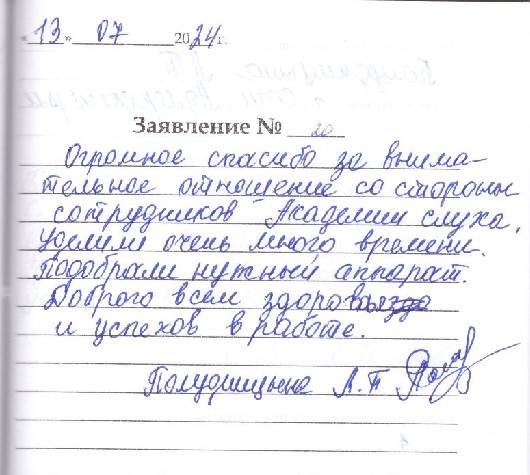 «13» 07 2024 г.
Заявление № 20
Огромное спасибо за внима-
тельное отношение со стороны
сотрудников Академии слуха.
Уделили очень много времени.
Подобрали нужный аппарат.
Доброго всем здоровья
и успехов в работе.
А.П.